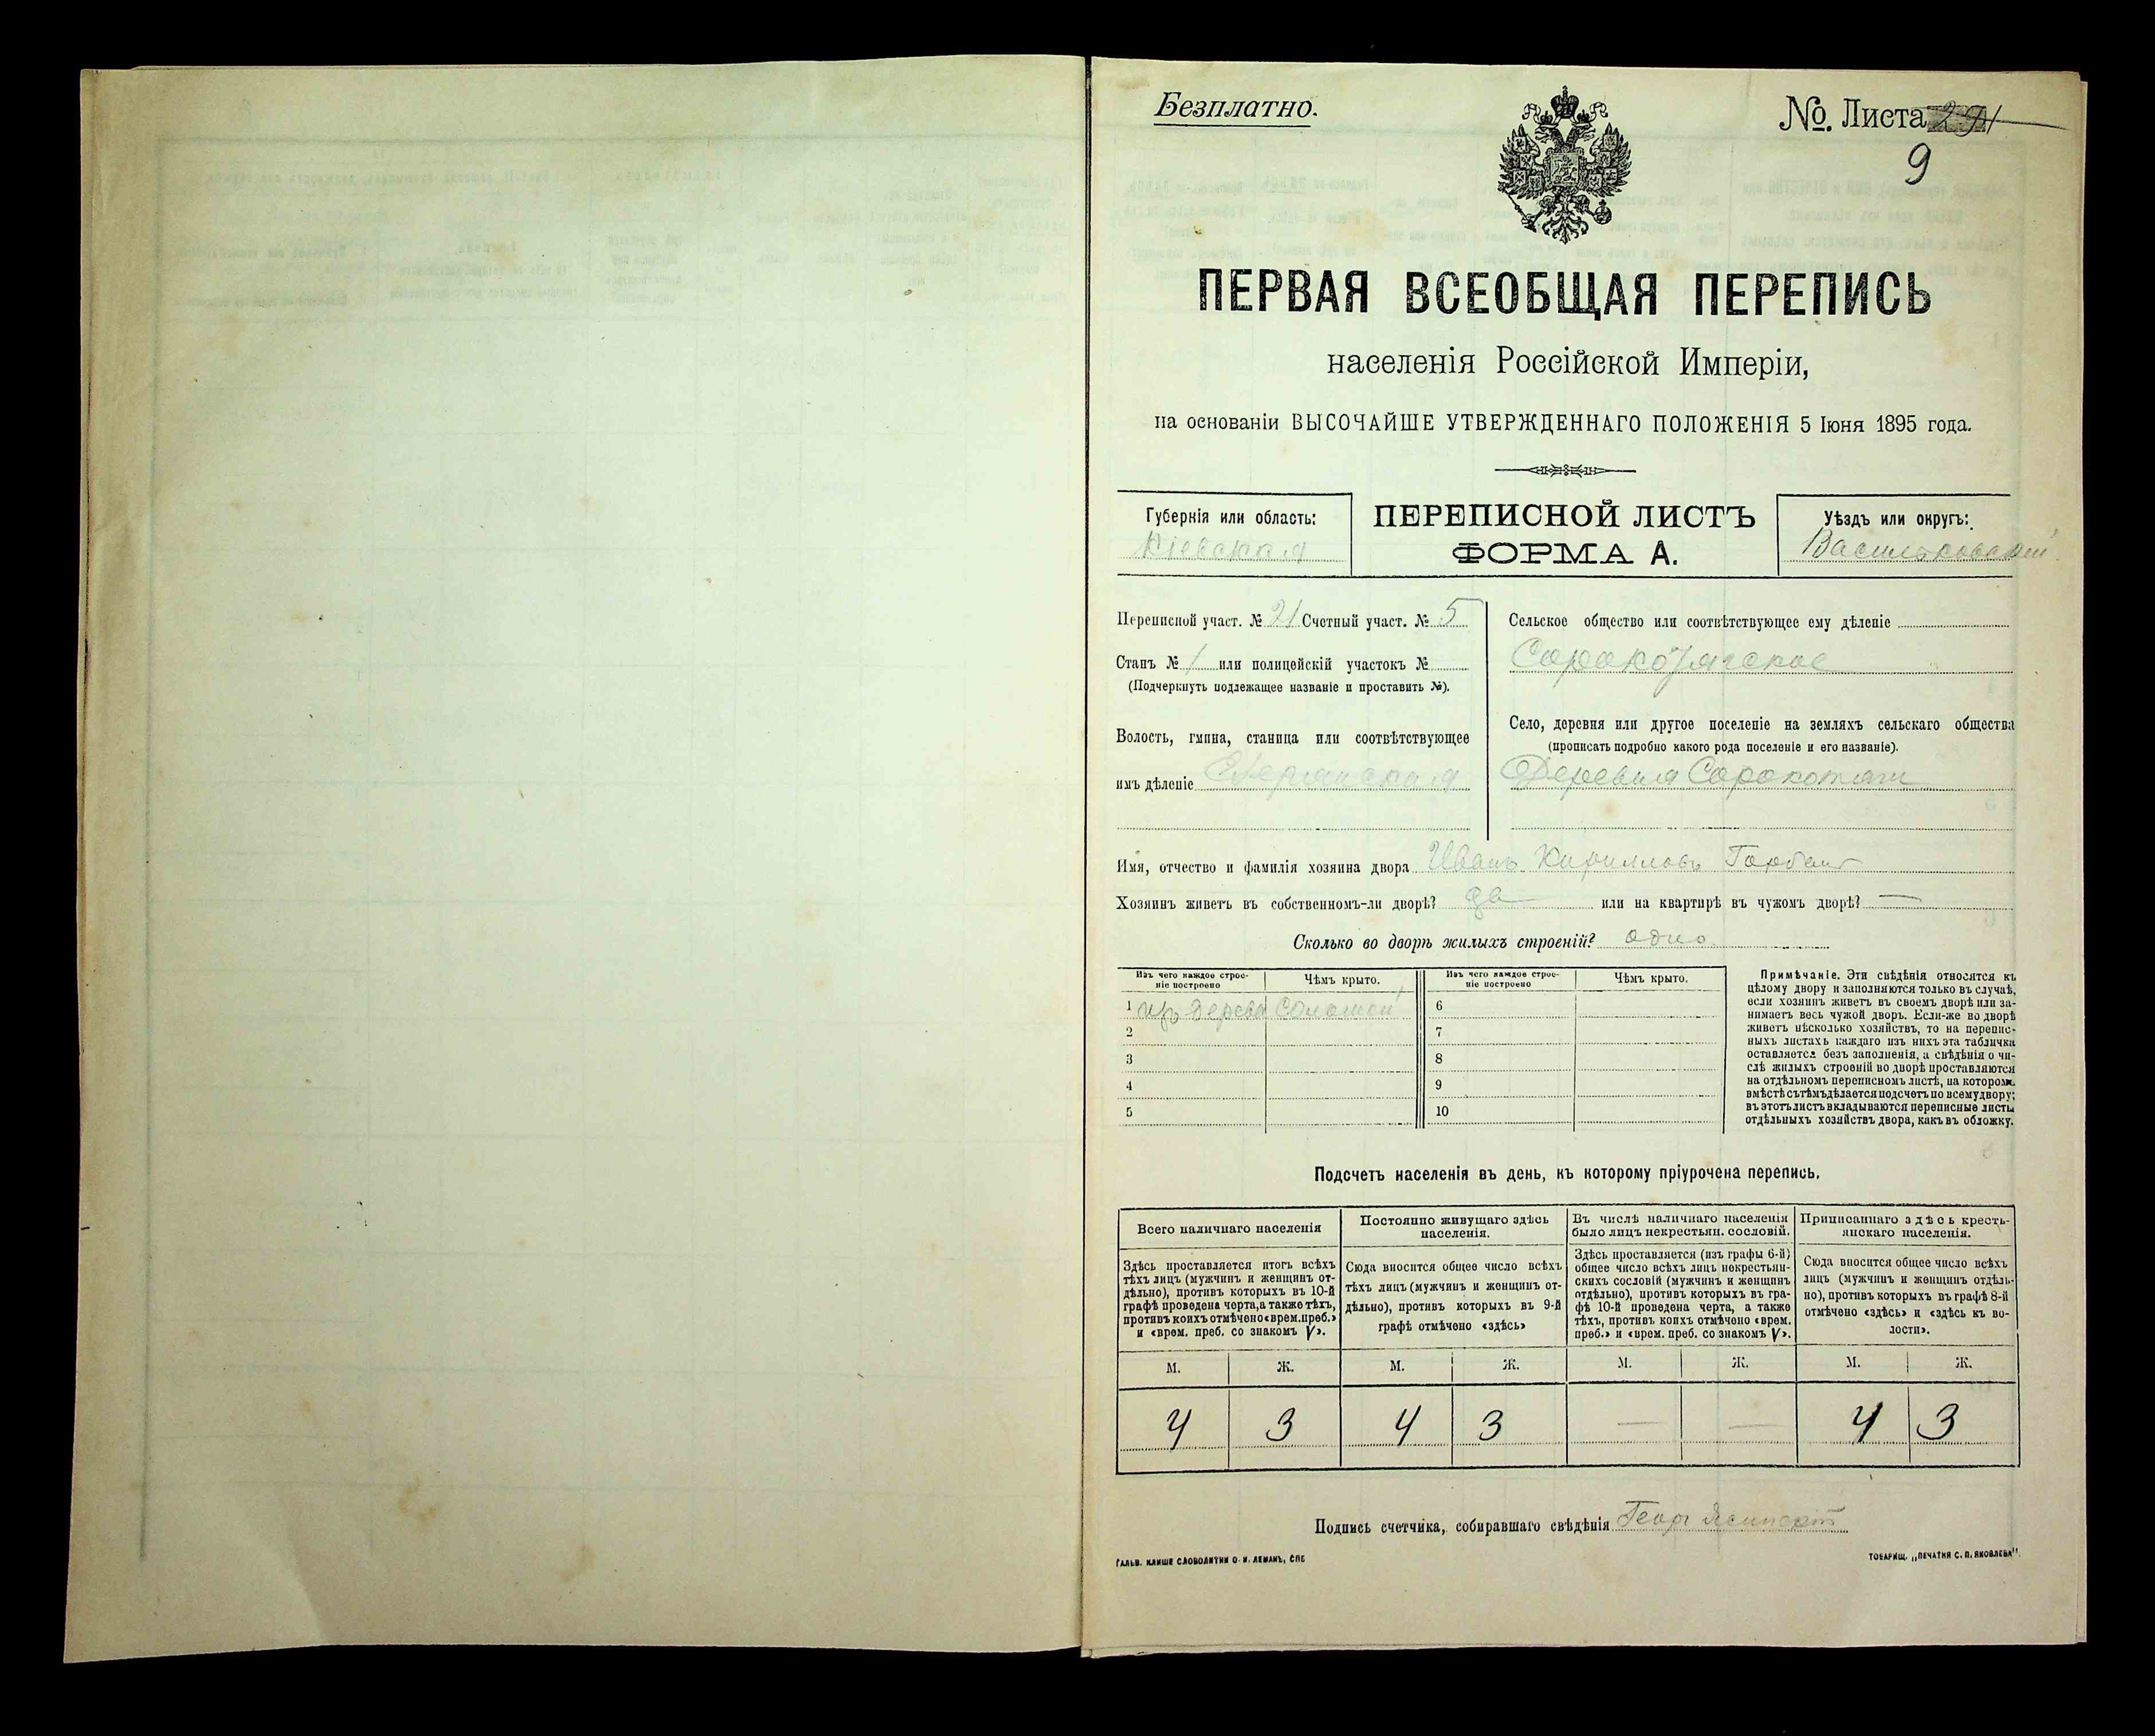 Безплатно.
№. Листа 291
9
ПЕРВАЯ ВСЕОБЩАЯ ПЕРЕПИСЬ
населенія Россійской Имперіи,
на основаніи ВЫСОЧАЙШЕ УТВЕРЖДЕННАГО ПОЛОЖЕНІЯ 5 Іюня 1895 года.
Губернія или область:
Кіевская
ПЕРЕПИСНОЙ ЛИСТЪ
ФОРМА А.
Уѣздъ или округъ:
Васильковскій
Переписной участ. № 21 Счетный участ. № 5
Станъ № 1 или полицейскій участокъ №
(Подчеркнуть подлежащее названіе и проставить №).
Волость, гмина, станица или соотвѣтствующее
имъ дѣленіе
Сельское общество или соотвѣтствующее ему дѣленіе
Сорокотягское
Село, деревня или другое поселеніе на земляхъ сельскаго общества
(прописать подробно какого рода поселеніе и его названіе).
Деревня Сорокотяги
Имя, отчество и фамилія хозяина двора Иванъ Кирилловъ
Хозяинъ живетъ въ собственномъ-ли дворѣ? да или на квартирѣ въ чужомъ дворѣ? —
Сколько во дворѣ жилыхъ строеній? одно
Изъ чего каждое строе-
ніе построено
Чѣмъ крыто.
Изъ чего каждое строе-
ніе построено
Чѣмъ крыто.
1 изъ дерева соломой
2
3
4
5
6
7
8
9
10
Примѣчаніе. Эти свѣдѣнія относятся къ
цѣлому двору и заполняются только въ случаѣ,
если хозяинъ живетъ въ своемъ дворѣ или за-
нимаетъ весь чужой дворъ. Если-же во дворѣ
живетъ нѣсколько хозяйствъ, то на перепис-
ныхъ листахъ каждаго изъ нихъ эта табличка
оставляется безъ заполненія, а свѣдѣнія о чи-
слѣ жилыхъ строеній во дворѣ проставляются
на отдѣльномъ переписномъ листѣ, на которомъ
вмѣстѣ съ тѣмъ дѣлается подсчетъ по всему двору;
въ этотъ листъ вкладываются переписные листы
отдѣльныхъ хозяйствъ двора, какъ въ обложку.
Подсчетъ населенія въ день, къ которому пріурочена перепись.
Всего наличнаго населенія
Постоянно живущаго здѣсь
населенія.
Въ числѣ наличнаго населенія
было лицъ некрестьян. сословій.
Приписаннаго здѣсь кресть-
янскаго населенія.
Здѣсь проставляется итогъ всѣхъ
тѣхъ лицъ (мужчинъ и женщинъ от-
дѣльно), противъ которыхъ въ 10-й
графѣ проведена черта, а также тѣхъ,
противъ коихъ отмѣчено «врем. преб.»
и «врем. преб. со знакомъ V».
Сюда вносится общее число всѣхъ
тѣхъ лицъ (мужчинъ и женщинъ от-
дѣльно), противъ которыхъ въ 9-й
графѣ отмѣчено «здѣсь»
Здѣсь проставляется (изъ графы 6-й)
общее число всѣхъ лицъ некрестьян-
скихъ сословій (мужчинъ и женщинъ
отдѣльно), противъ которыхъ въ гра-
фѣ 10-й проведена черта, а также
тѣхъ, противъ коихъ отмѣчено «врем.
преб.» и «врем. преб. со знакомъ V».
Сюда вносится общее число всѣхъ
лицъ (мужчинъ и женщинъ отдѣль-
но), противъ которыхъ въ графѣ 8-й
отмѣчено «здѣсь» и «здѣсь къ во-
лости».
М. Ж. М. Ж. М. Ж. М. Ж.
4 3 4 3 — — 4 3
Подпись счетчика, собиравшаго свѣдѣнія Георг
ГАЛЬВ. КЛИШЕ СЛОВОЛИТНИ О. И. ЛЕМАНЪ, СПБ
ТОВАРИЩ. „ПЕЧАТНЯ С. П. ЯКОВЛЕВА".